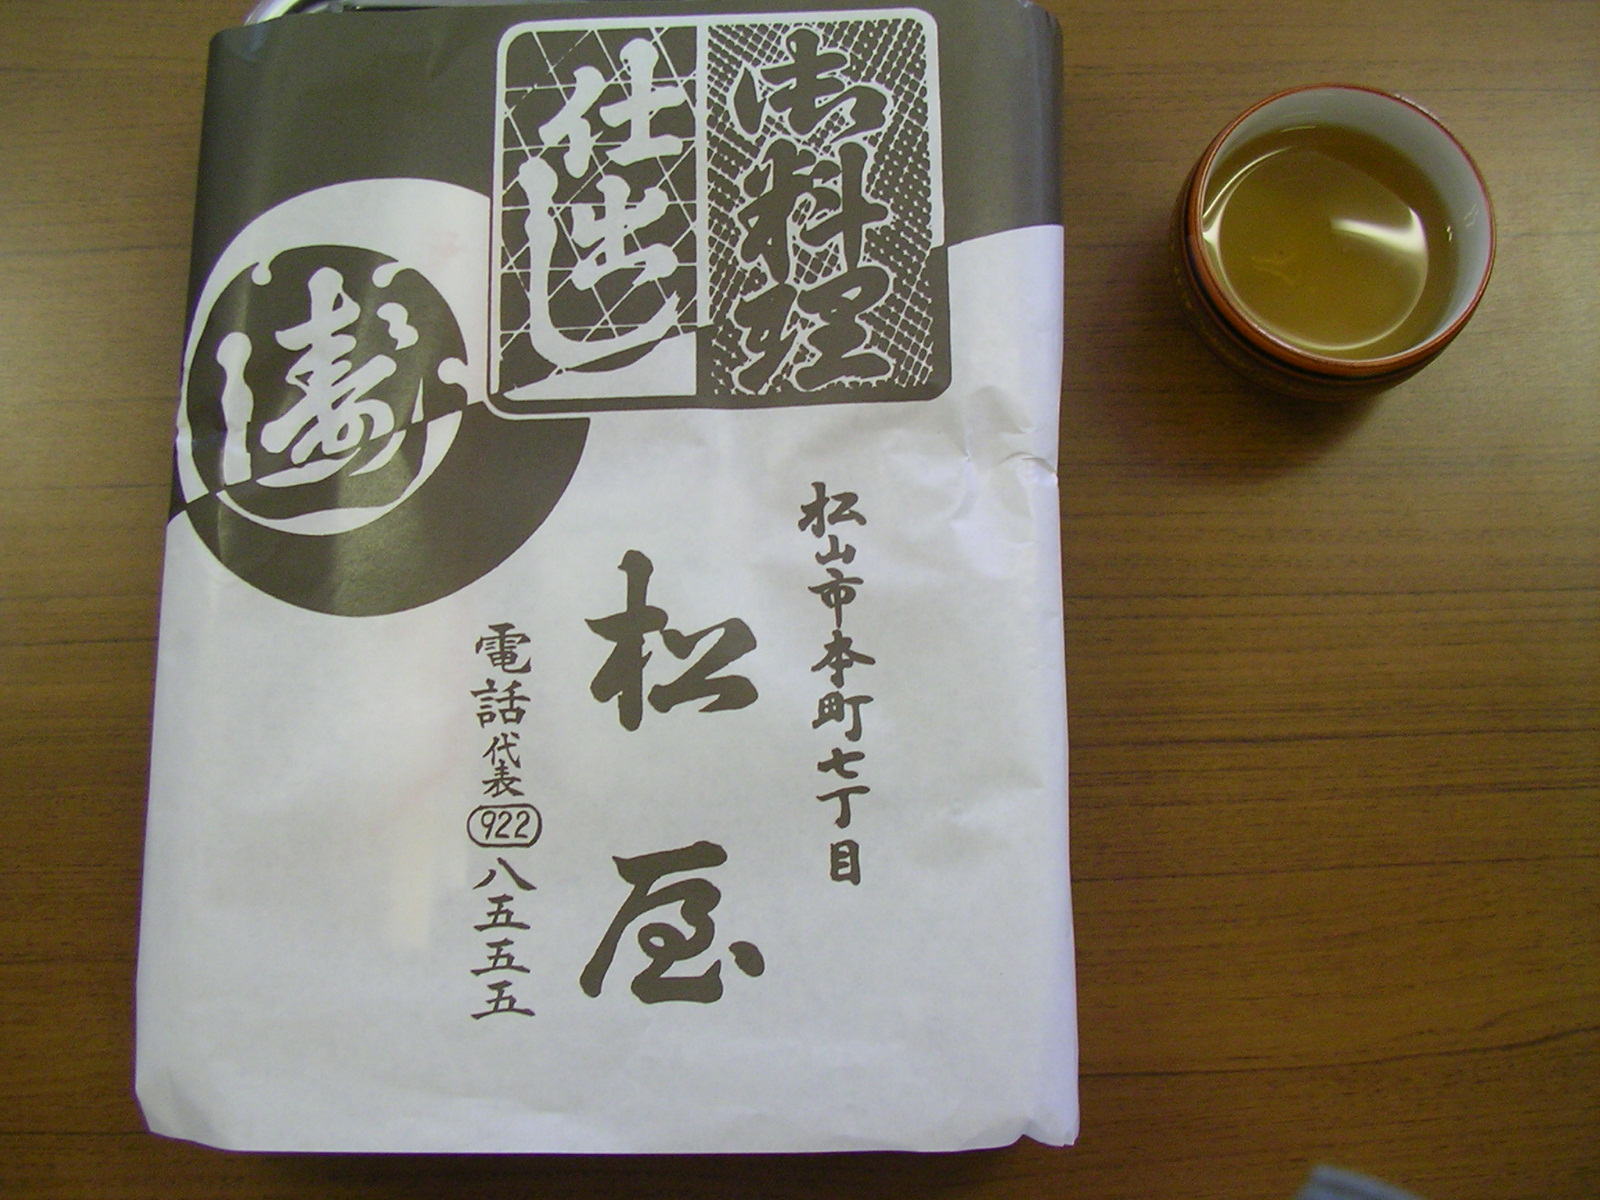 御料理
仕出し
寿し
松山市本町七丁目
松屋
電話代表922八五五五